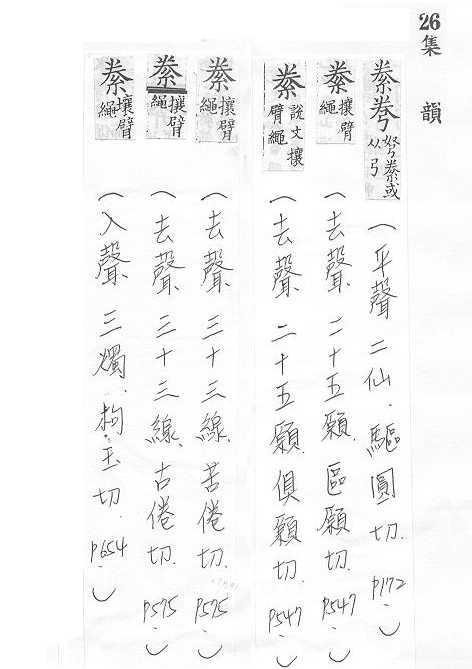 26集韻
絭弮弩絭或从弓（平聲二仙．驅圓切．P172．）
絭攘臂繩（去聲二十五願．區願切．P547．）
絭說文攘臂繩（去聲二十五願．俱願切．P547．）
絭攘臂繩（去聲三十三線．苦倦切．P575．）
絭攘臂繩（去聲三十三線．古倦切．P575．）
絭攘臂繩（入聲三燭．拘玉切．P654．）